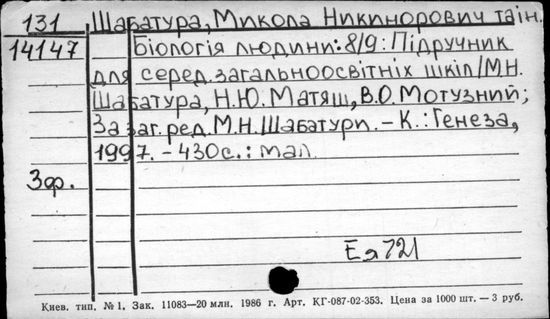 131 Шабатура, Микола Никинорович та ін.
14147 Біологія людини: 8/9: Підручник
для серед. загальноосвітніх шкіл/М.Н.
Шабатура, Н.Ю. Матяш, В.О. Мотузний;
За заг. ред. М.Н. Шабатури. – К.: Генеза,
1997. – 430с.: мал.
3ф.
Ея721
Киев. тип. № 1, Зак. 11083—20 млн. 1986 г. Арт. КГ-087-02-353. Цена за 1000 шт. — 3 руб.